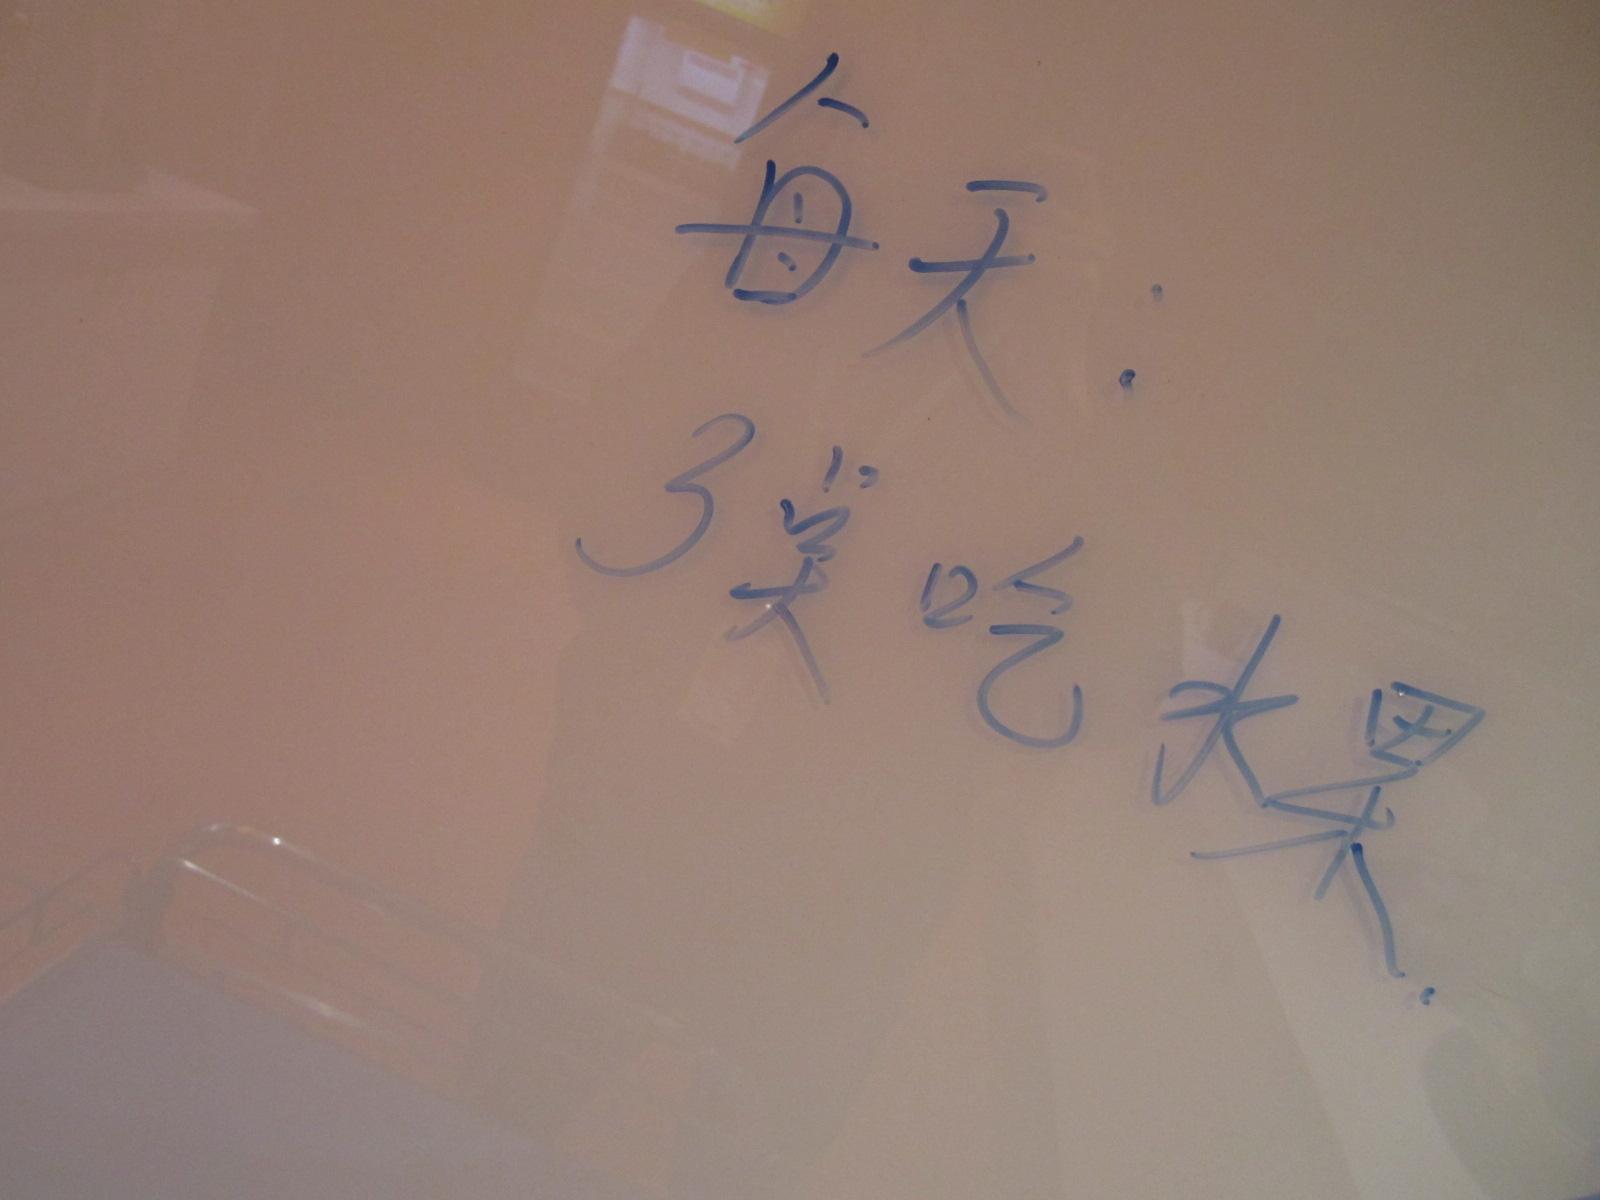 每天:
3笑吃水果.